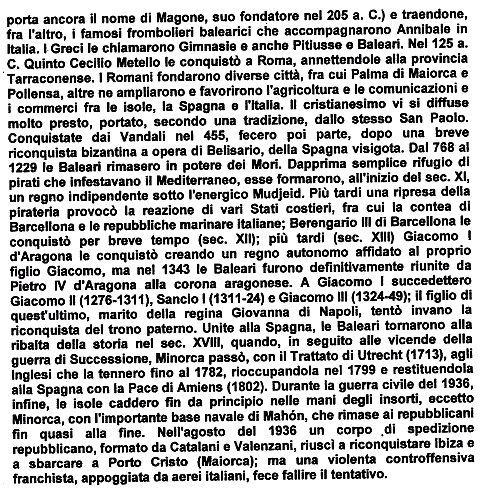 porta ancora il nome di Magone, suo fondatore nel 205 a. C.) e traendone,
fra l'altro, i famosi frombolieri balearici che accompagnarono Annibale in
Italia. I Greci le chiamarono Gimnasie e anche Pitiusse e Baleari. Nel 125 a.
C. Quinto Cecilio Metello le conquistò a Roma, annettendole alla provincia
Tarraconense. I Romani fondarono diverse città, fra cui Palma di Maiorca e
Pollensa, altre ne ampliarono e favorirono l'agricoltura e le comunicazioni e
i commerci fra le isole, la Spagna e l'Italia. Il cristianesimo vi si diffuse
molto presto, portato, secondo una tradizione, dallo stesso San Paolo.
Conquistate dai Vandali nel 455, fecero poi parte, dopo una breve
riconquista bizantina a opera di Belisario, della Spagna visigota. Dal 768 al
1229 le Baleari rimasero in potere dei Mori. Dapprima semplice rifugio di
pirati che infestavano il Mediterraneo, esse formarono, all'inizio del sec. XI,
un regno indipendente sotto l'energico Mudjeid. Più tardi una ripresa della
pirateria provocò la reazione di vari Stati costieri, fra cui la contea di
Barcellona e le repubbliche marinare Italiane; Berengario III di Barcellona le
conquistò per breve tempo (sec. XII); più tardi (sec. XIII) Giacomo I
d'Aragona le conquistò creando un regno autonomo affidato al proprio
figlio Giacomo, ma nel 1343 le Baleari furono definitivamente riunite da
Pietro IV d'Aragona alla corona aragonese. A Giacomo I succedettero
Giacomo II (1276-1311), Sancio I (1311-24) e Giacomo III (1324-49); il figlio di
quest'ultimo, marito della regina Giovanna di Napoli, tentò invano la
riconquista del trono paterno. Unite alla Spagna, le Baleari tornarono alla
ribalta della storia nel sec. XVIII, quando, in seguito alle vicende della
guerra di Successione, Minorca passò, con il Trattato di Utrecht (1713), agli
Inglesi che la tennero fino al 1782, rioccupandola nel 1799 e restituendola
alla Spagna con la Pace di Amiens (1802). Durante la guerra civile del 1936,
infine, le isole caddero fin da principio nelle mani degli insorti, eccetto
Minorca, con l'importante base navale di Mahón, che rimase ai repubblicani
fin quasi alla fine. Nell'agosto del 1936 un corpo di spedizione
repubblicano, formato da Catalani e Valenzani, riuscì a riconquistare Ibiza e
a sbarcare a Porto Cristo (Maiorca); ma una violenta controffensiva
franchista, appoggiata da aerei italiani, fece fallire il tentativo.